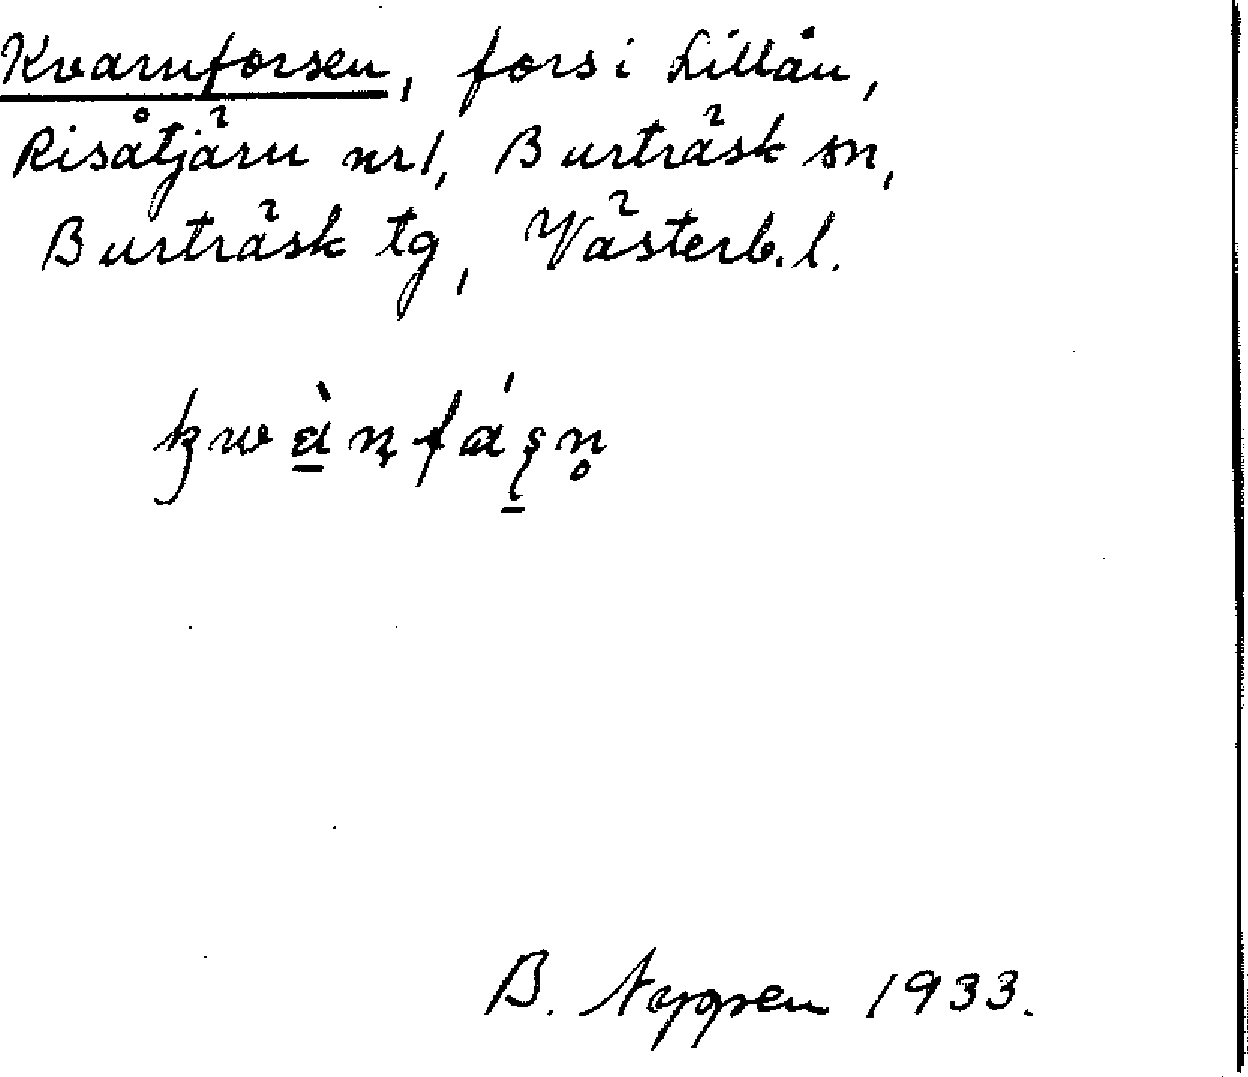 Kvarnforsen, fors i Lillån,
Risåtjärn nr 1, Burträsk sn,
Burträsk tg, Västerb. l.
B. Nyppen 1933.